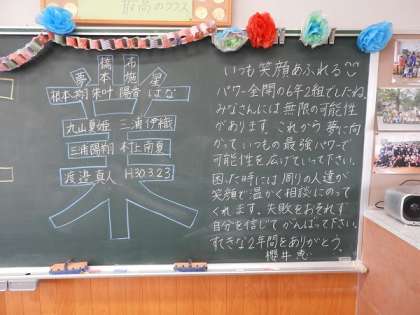 最高のクラス
橋本 布施
夢 叶 陽音 星
根本 朱 はな
丸山夏姫 三浦伊織
三浦陽翔 村上南夏
渡邉真人 H30.3.23
いつも笑顔あふれる
パワー全開の6年2組でしたね。
みなさんには無限の可能性
があります。これから夢に向
かっていつもの最強パワーで
可能性を広げていって下さい。
困った時には周りの人達が
笑顔で温かく相談にのって
くれます。失敗をおそれず
自分を信じてがんばって下さい。
すてきな2年間をありがとう。
櫻井 恵